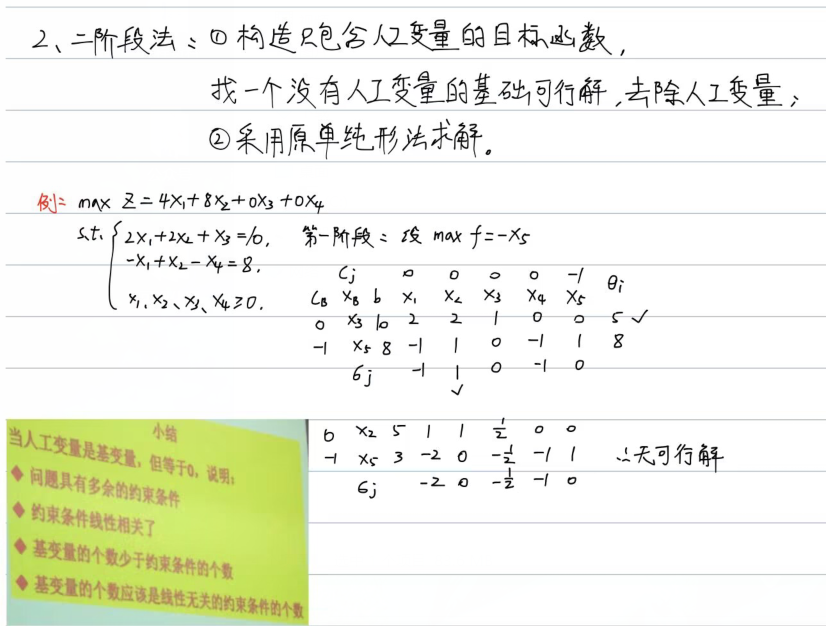 2、二阶段法：① 构造只包含人工变量的目标函数，
找一个没有人工变量的基础可行解，去除人工变量；
② 采用原单纯形法求解。
例： max Z = 4x₁+8x₂+0x₃+0x₄
s.t. { 2x₁+2x₂+x₃=10, 第一阶段：设 max f=-x₅
-x₁+x₂-x₄=8,
x₁、x₂、x₃、x₄≥0.
Cj 0 0 0 0 -1 θi
CB XB b x₁ x₂ x₃ x₄ x₅
0 x₃ 10 2 2 1 0 0 5 ✓
-1 x₅ 8 -1 1 0 -1 1 8
σj -1 1 0 -1 0
✓
0 x₂ 5 1 1 1/2 0 0
-1 x₅ 3 -2 0 -1/2 -1 1 ∴无可行解
σj -2 0 -1/2 -1 0
小结
当人工变量是基变量，但等于0，说明：
◆ 问题具有多余的约束条件
◆ 约束条件线性相关了
◆ 基变量的个数少于约束条件的个数
◆ 基变量的个数应该是线性无关的约束条件的个数